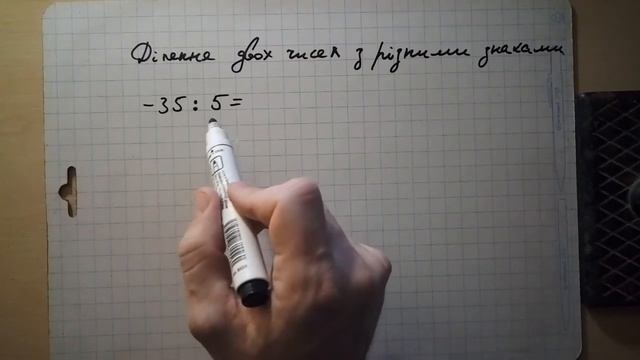 Ділення двох чисел з різними знаками
-35 : 5 =